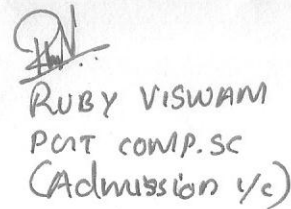 RUBY VISWAM
PGT COMP.SC
(Admission i/c)